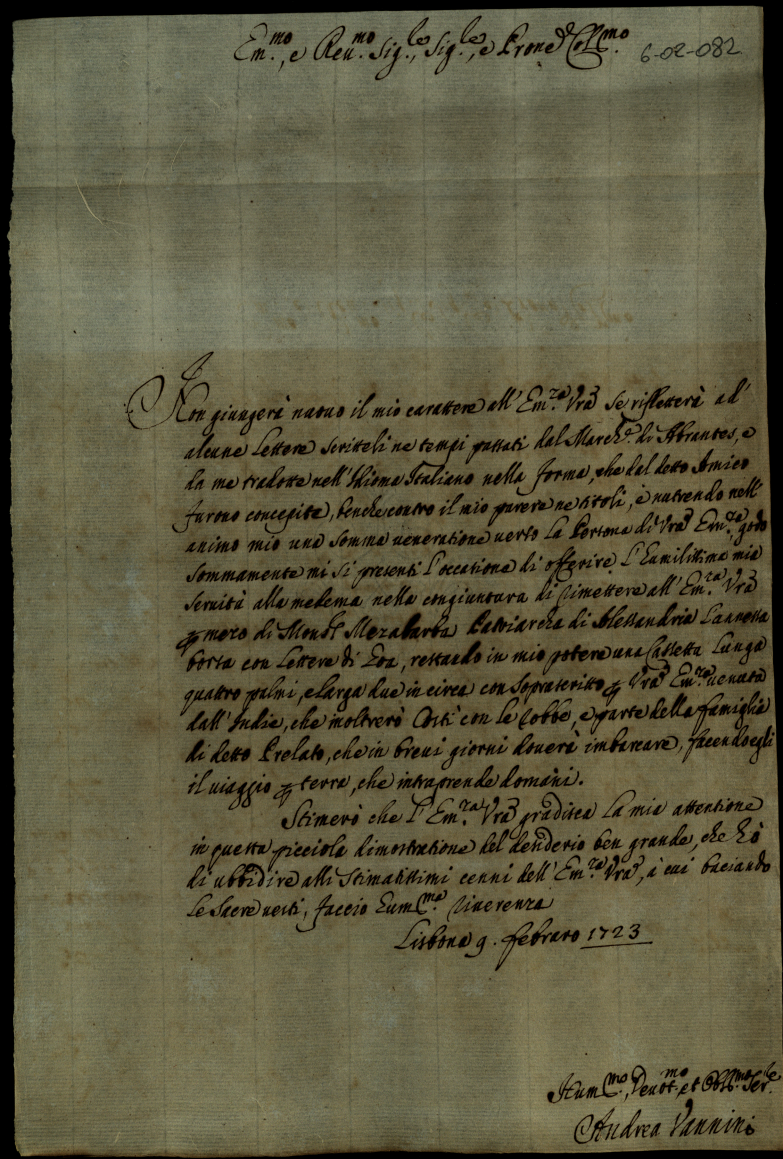 Em.mo, e Reu.mo Sig.le, Sig.le, e Prone Coll.mo
6-02-082
Non giungerà nuouo il mio carattere all' Em.za Vra se rifletterà ad'
alcune Lettere scritteli ne tempi passati dal March.e di Abrantes, e
da me tradotte nell' Idioma Italiano nella forma, che dal detto Amico
furono concepite, benche contro il mio parere ne titoli, e nutrendo nell'
animo mio una somma ueneratione uerso la Persona di Vra Em.za godo
sommamente mi si presenti l'occatione di offerire l'humilissima mia
seruità alla medema nella congiuntura di rimettere all' Em.za Vra
p mezo di Mons.r Mezabarba Patriarcha di Alessandria l'annessa
borsa con Lettere di Goa, restando in mio potere una Cassetta lunga
quattro palmi, e larga due in circa con soprascritto p Vra Em.za uenuta
dall' Indie, che inoltrerò Costì con le robbe, e parte della famiglia
di detto Prelato, che in breui giorni douerà imbarcare, facendo egli
il uiaggio p terra, che intraprende domàni.
Stimerò che l' Em.za Vra gradisca la mia attentione
in questa picciola dimostratione del desiderio ben grande, che hò
di ubbidire alli stimatissimi cenni dell' Em.za Vra, à cui baciando
le sacre uesti, faccio hum.ma riuerenza
Lisbona 9. febraro 1723
Hum.mo, Deuot.mo, et Obb.mo Ser.le
Andrea Vannini